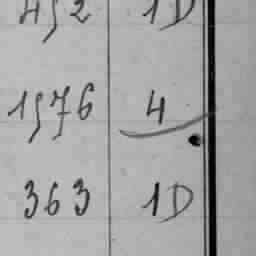 452 1D
1576 4
363 1D